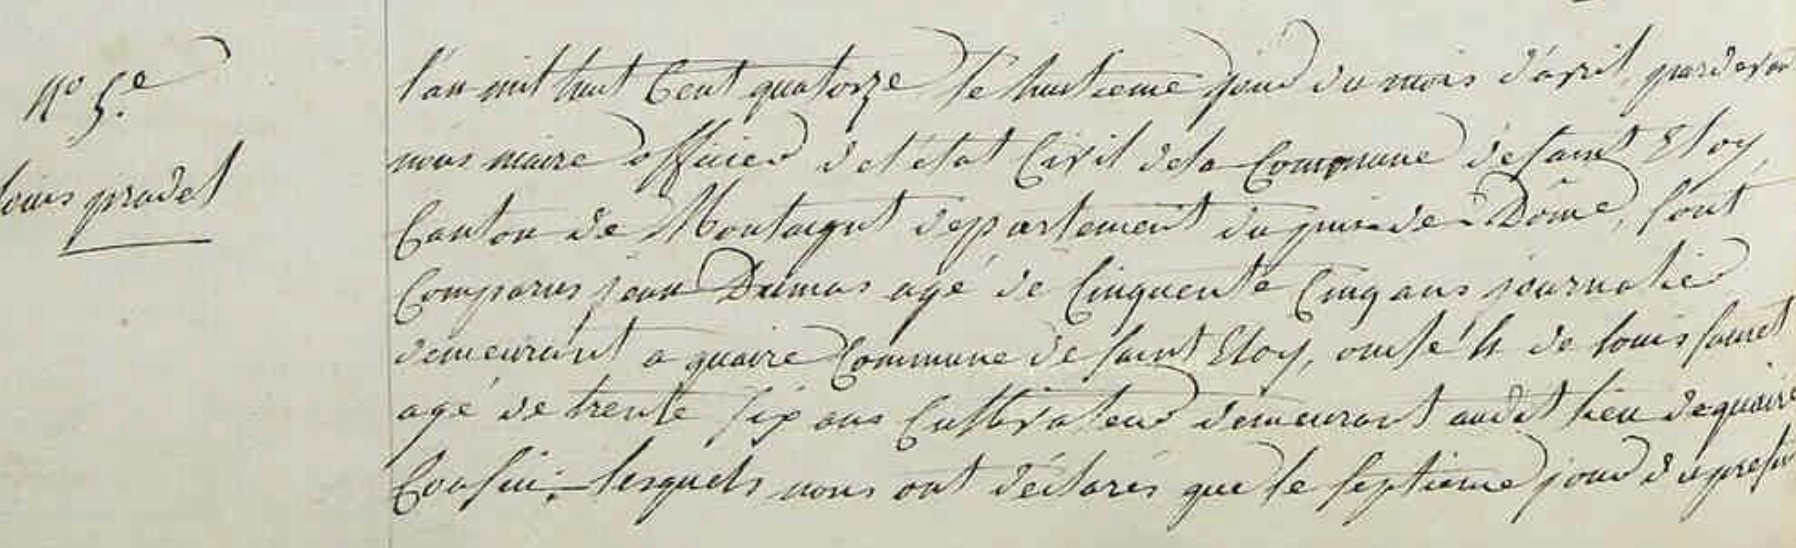 N.o 5.e
louis pradel
l'an mil huit Cent quatorze le huitieme jour du mois d'avril pardevan
nous maire officier de l'etat Civil de la Commune de saint Eloy
Canton de Montaigut departement du puis de Dôme, sont
Comparus jean Dumas agé de Cinquente Cinq ans journalié
demeurant a quaire Commune de saint Eloy, de louis
agé de trente six ans Cultivateur demeurant audit lieu de quaire
Cousin; lesquels nous ont déclarés que le septieme jour du presen